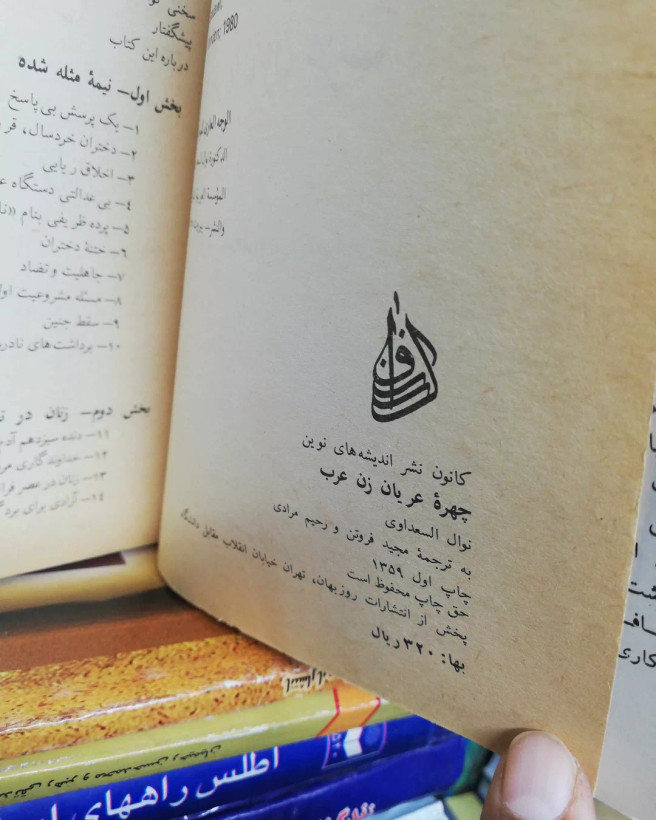 پیشگفتار
درباره این کتاب
بخش اول– نیمهٔ مثله شده
۱– یک پرسش بی پاسخ
۲– دختران خردسال،
۳– اخلاق ریایی
۴– بی عدالتی دستگاه
۵– پرده ظریفی بنام
۶– ختنهٔ دختران
۷– جاهلیت و تضاد
۸– مسئله مشروعیت
۹– سقط جنین
۱۰– برداشت های
بخش دوم– زنان در
۱۱– دنده سیزدهم
۱۲– خداوندگاری
۱۳– زنان در عصر
۱۴– آزادی برای
1980
کانون نشر اندیشه‌های نوین
چهرهٔ عریان زن عرب
نوال السعداوی
به ترجمهٔ مجید فروتن و رحیم مرادی
چاپ اول ۱۳۵۹
حق چاپ محفوظ است
پخش از انتشارات روزبهان، تهران خیابان انقلاب مقابل دانشگاه
بها: ۳۲۰ ریال
اطلس راههای